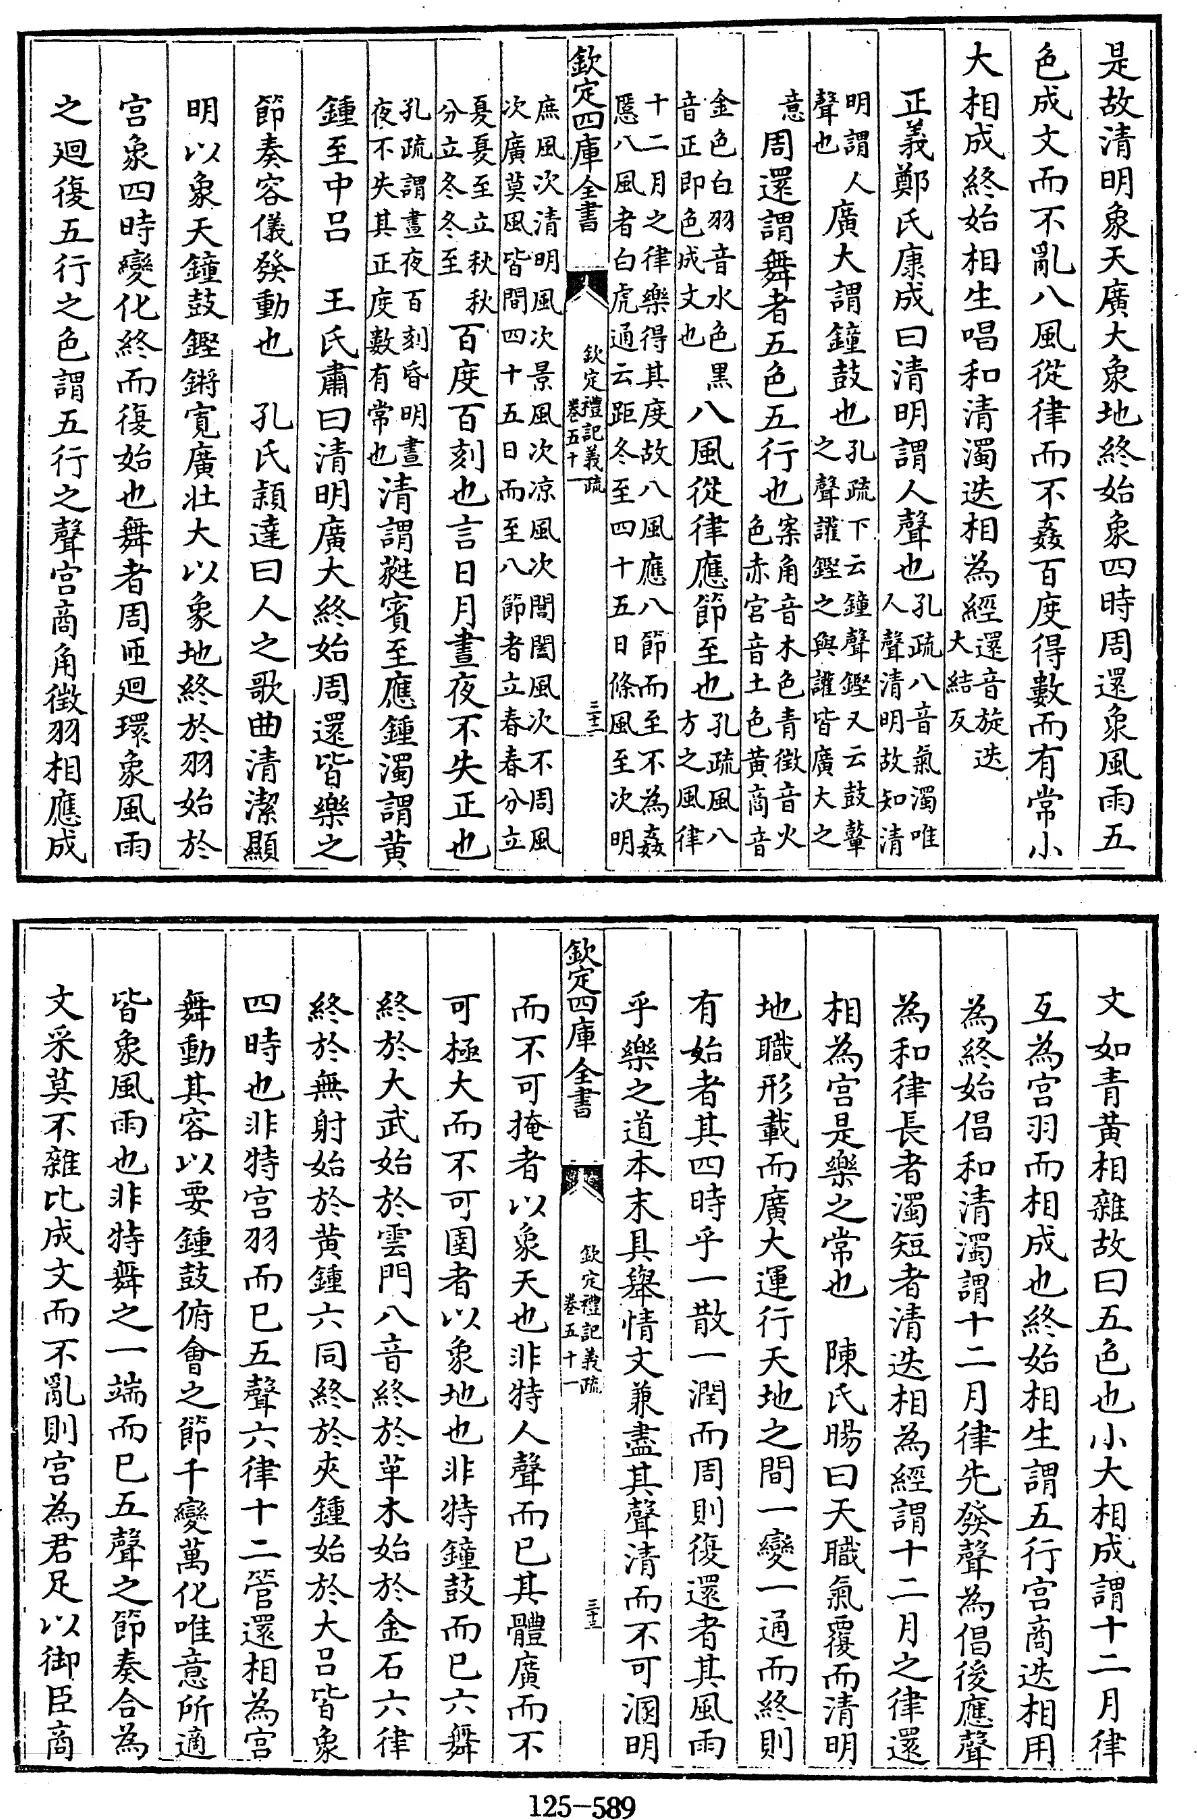 是故清明象天廣大象地終始象四時周還象風雨五
色成文而不亂八風從律而不姦百度得數而有常小
大相成終始相生唱和清濁迭相為經還音旋迭大結反
正義鄭氏康成曰清明謂人聲也孔疏八音氣濁唯人聲清明故知清
明謂人聲也廣大謂鐘鼓也孔疏下云鐘聲鏗又云鼓鼙之聲讙鏗之與讙皆廣大之
意周還謂舞者五色五行也案角音木色青徵音火色赤宫音土色黃商音
金色白羽音水色黑音正即色成文也八風從律應節至也孔疏風八方之風律
十二月之律樂得其度故八風應八節而至不為姦慝八風者白虎通云距冬至四十五日條風至次明
欽定四庫全書 欽定禮記義疏卷五十一 三十二
庶風次清明風次景風次凉風次閶闔風次不周風次廣莫風皆間四十五日而至八節者立春春分立
夏夏至立秋秋分立冬冬至百度百刻也言日月晝夜不失正也
孔疏謂晝夜百刻昏明晝夜不失其正度數有常也清謂蕤賓至應鍾濁謂黃
鍾至中呂 王氏肅曰清明廣大終始周還皆樂之
節奏容儀發動也 孔氏穎達曰人之歌曲清潔顯
明以象天鐘鼓鏗鏘寛廣壯大以象地終於羽始於
宫象四時變化終而復始也舞者周匝廻環象風雨
之廻復五行之色謂五行之聲宫商角徵羽相應成
文如青黃相雜故曰五色也小大相成謂十二月律
互為宫羽而相成也終始相生謂五行宫商迭相用
為終始倡和清濁謂十二月律先發聲為倡後應聲
為和律長者濁短者清迭相為經謂十二月之律還
相為宫是樂之常也 陳氏暘曰天職氣覆而清明
地職形載而廣大運行天地之間一變一通而終則
有始者其四時乎一散一潤而周則復還者其風雨
乎樂之道本末具舉情文兼盡其聲清而不可溷明
欽定四庫全書 欽定禮記義疏卷五十一 三十三
而不可掩者以象天也非特人聲而已其體廣而不
可極大而不可圉者以象地也非特鐘鼓而已六舞
終於大武始於雲門八音終於革木始於金石六律
終於無射始於黃鍾六同終於夾鍾始於大呂皆象
四時也非特宫羽而已五聲六律十二管還相為宫
舞動其容以要鍾鼓俯會之節千變萬化唯意所適
皆象風雨也非特舞之一端而已五聲之節奏合為
文采莫不雜比成文而不亂則宫為君足以御臣商
125-589